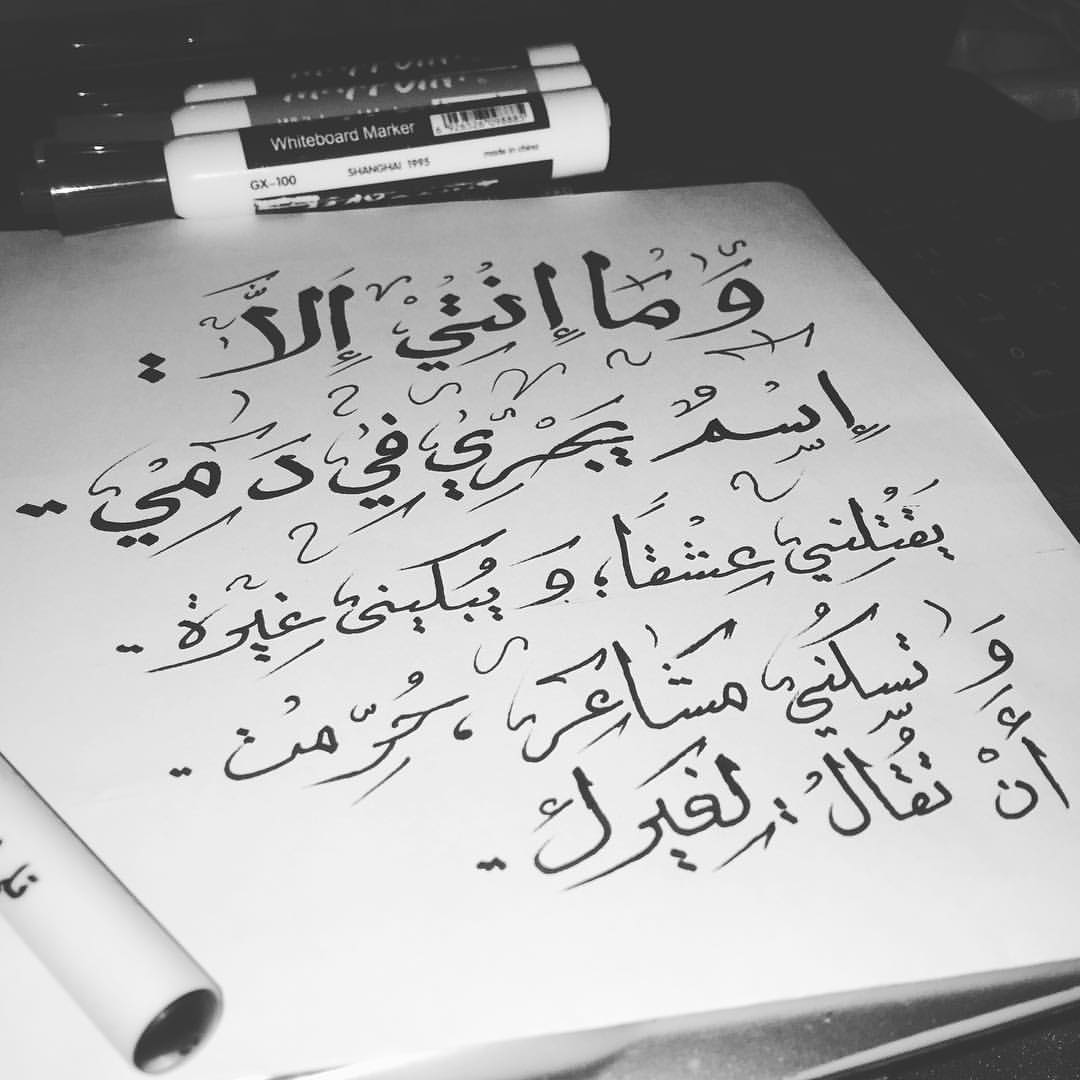 Whiteboard Marker
GX-100 SHANGHAI 1995 made in china
وَمَا إِنْتِيْ إِلاَّ :
إِسْمٌ يَجْرِيْ فِيْ دَمِيْ ..
يَقتُلني عِشْقاً؛ وَ يُبكيني غِيرة ..
وَ تسكنُي مشاعِر، حُرّمتْ ..
أَنْ تُقالُ لِغيرك ..